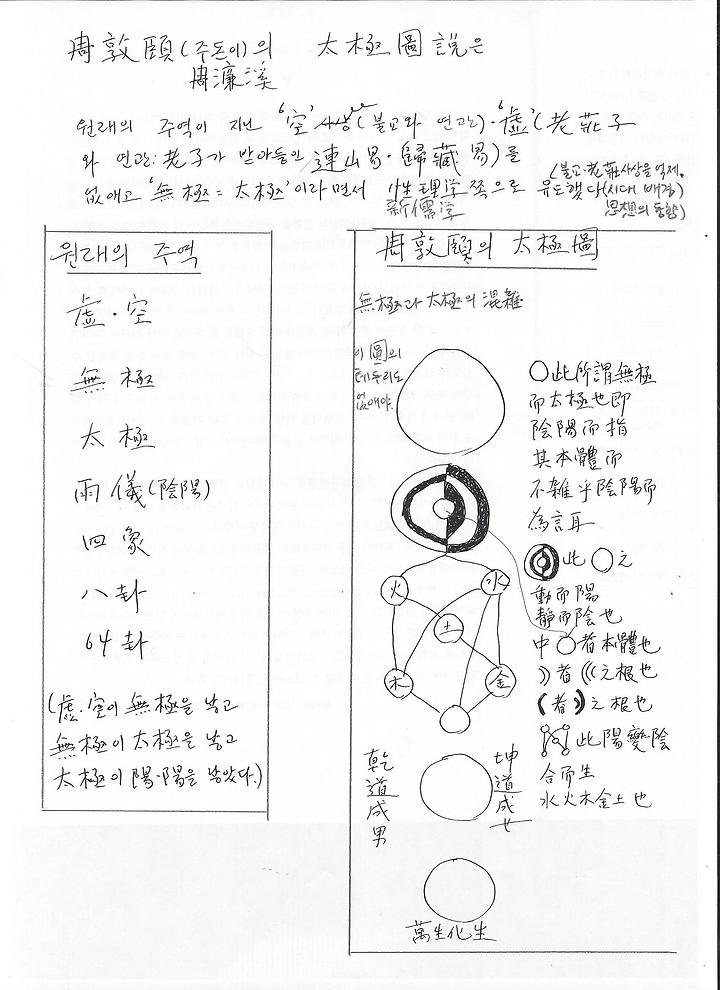 周敦頤(주돈이)의 太極圖說은
周濂溪
원래의 주역이 지닌 '空'사상(불교와 연관)·'虛'(老莊子
와 연관: 老子가 받아들인 連山易·歸藏易)를
없애고 '無極=太極'이라면서 性理学쪽으로 유도했다(시대 배경)
(불교·老莊사상을 억제,
新儒学
思想의 동향)
원래의 주역
虛·空
無極
太極
兩儀(陰陽)
四象
八卦
64卦
(虛·空이 無極을 낳고
無極이 太極을 낳고
太極이 陽·陽을 낳았다.)
周敦頤의 太極圖
無極과 太極의 混雜
이 圓의
테두리도
없애야.
○此所謂無極
而太極也即
陰陽而指
其本體而
不雜乎陰陽而
為言耳
此○之
動而陽
靜而陰也
中○者本體也
))者(((之根也
(者)之根也
此陽變陰
合而生
水火木金土也
火
水
土
木
金
乾道成男
坤道成女
萬生化生